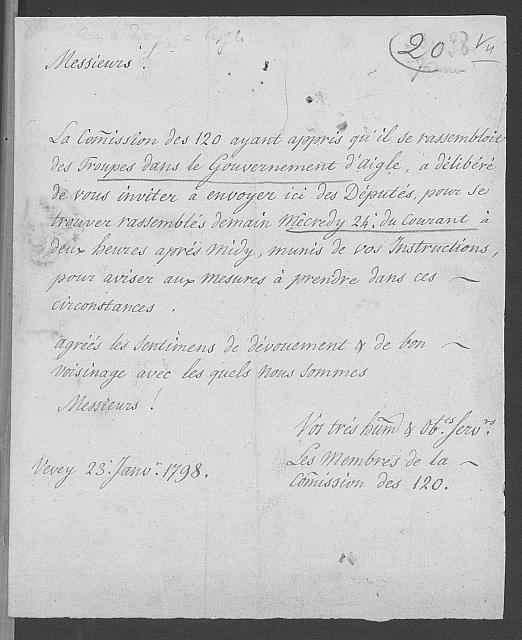 20
Messieurs !
La Com̃ission des 120 ayant appris qu'il se rassembloit
des Troupes dans le Gouvernement d'aigle, a délibéré
de vous inviter à envoyer ici des Députés, pour se
trouver rassemblés demain Mécredy 24.e du Courant à
deux heures aprés Midy, munis de vos Instructions,
pour aviser aux Mesures à prendre dans ces
circonstances .
agréés les Sentimens de dévouement & de bon
voisinage avec les quels Nous Sommes
Messieurs !
Vos trés hum̃ & Ob.ts Serv.rs
Vevey 23.e Janv.r 1798.
Les Membres de la
Com̃ission des 120.